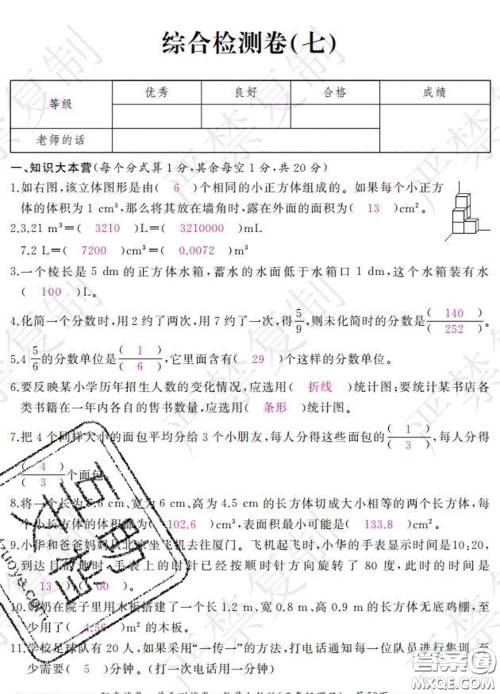 综合检测卷(七)
等级 优秀 良好 合格 成绩
老师的话
一、知识大本营(每个分式算1分,其余每空1分,共20分)
1.如右图,该立体图形是由( 6 )个相同的小正方体组成的。如果每个小正方
体的体积为1 cm³,那么将其放在墙角时,露在外面的面积为( 13 )cm²。
2.3.21 m³=( 3210 )L=( 3210000 )mL
7.2 L=( 7200 )cm³=( 0.0072 )m³
3.一个棱长是5 dm的正方体水箱,蓄水的水面低于水箱口1 dm,这个水箱装有水
( 100 )L。
4.化简一个分数时,用2约了两次,用7约了一次,得5/9,则未化简时的分数是( 140 )/( 252 )。
5.4 5/6的分数单位是( 1 )/( 6 ),它里面含有( 29 )个这样的分数单位。
6.要反映某小学历年招生人数的变化情况,应选用( 折线 )统计图;要统计某书店各
类书籍在一年内各自的售书数量,应选用( 条形 )统计图。
7.把4个同样大小的面包平均分给3个小朋友,每人分得这些面包的( 1 )/( 3 ),每人分得
( 4 )/( 3 )个面包。
8.将一个长为7.6 cm,宽为6 cm,高为4.5 cm的长方体切成大小相等的两个长方体,每
个小长方体的体积都为( 102.6 )cm³,表面积最小可能是( 133.8 )cm²。
9.小华和爸爸妈妈从北京坐飞机去往厦门。飞机起飞时,小华的手表显示时间是10:20,
到达目的地时,手表上的时针已经按顺时针方向旋转了80度,此时的时间是
( 13 : 00 )。
10.奶奶在院子里用木板搭建了一个长1.2 m,宽0.8 m,高0.9 m的长方体无底鸡棚,至
少用了( 4.56 )m²的木板。
11.学校足球队有20人,如果采用“一传一”的方法,打电话通知每一位队员进行集训,至
少需要( 5 )分钟。(打一次电话用一分钟)
严禁复制
答案圈
MXQE.COM